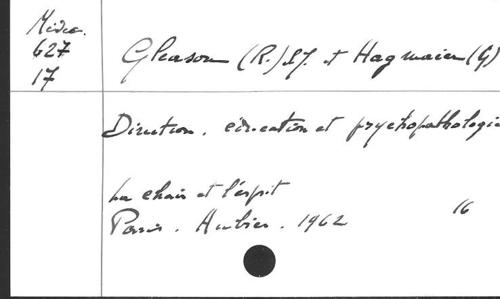 Médec.
627
17
Gleason (R.) S.J. et Hagmaier (G)
Direction, éducation et psychopathologie
La chair et l'esprit
Paris. Aubier. 1962
16